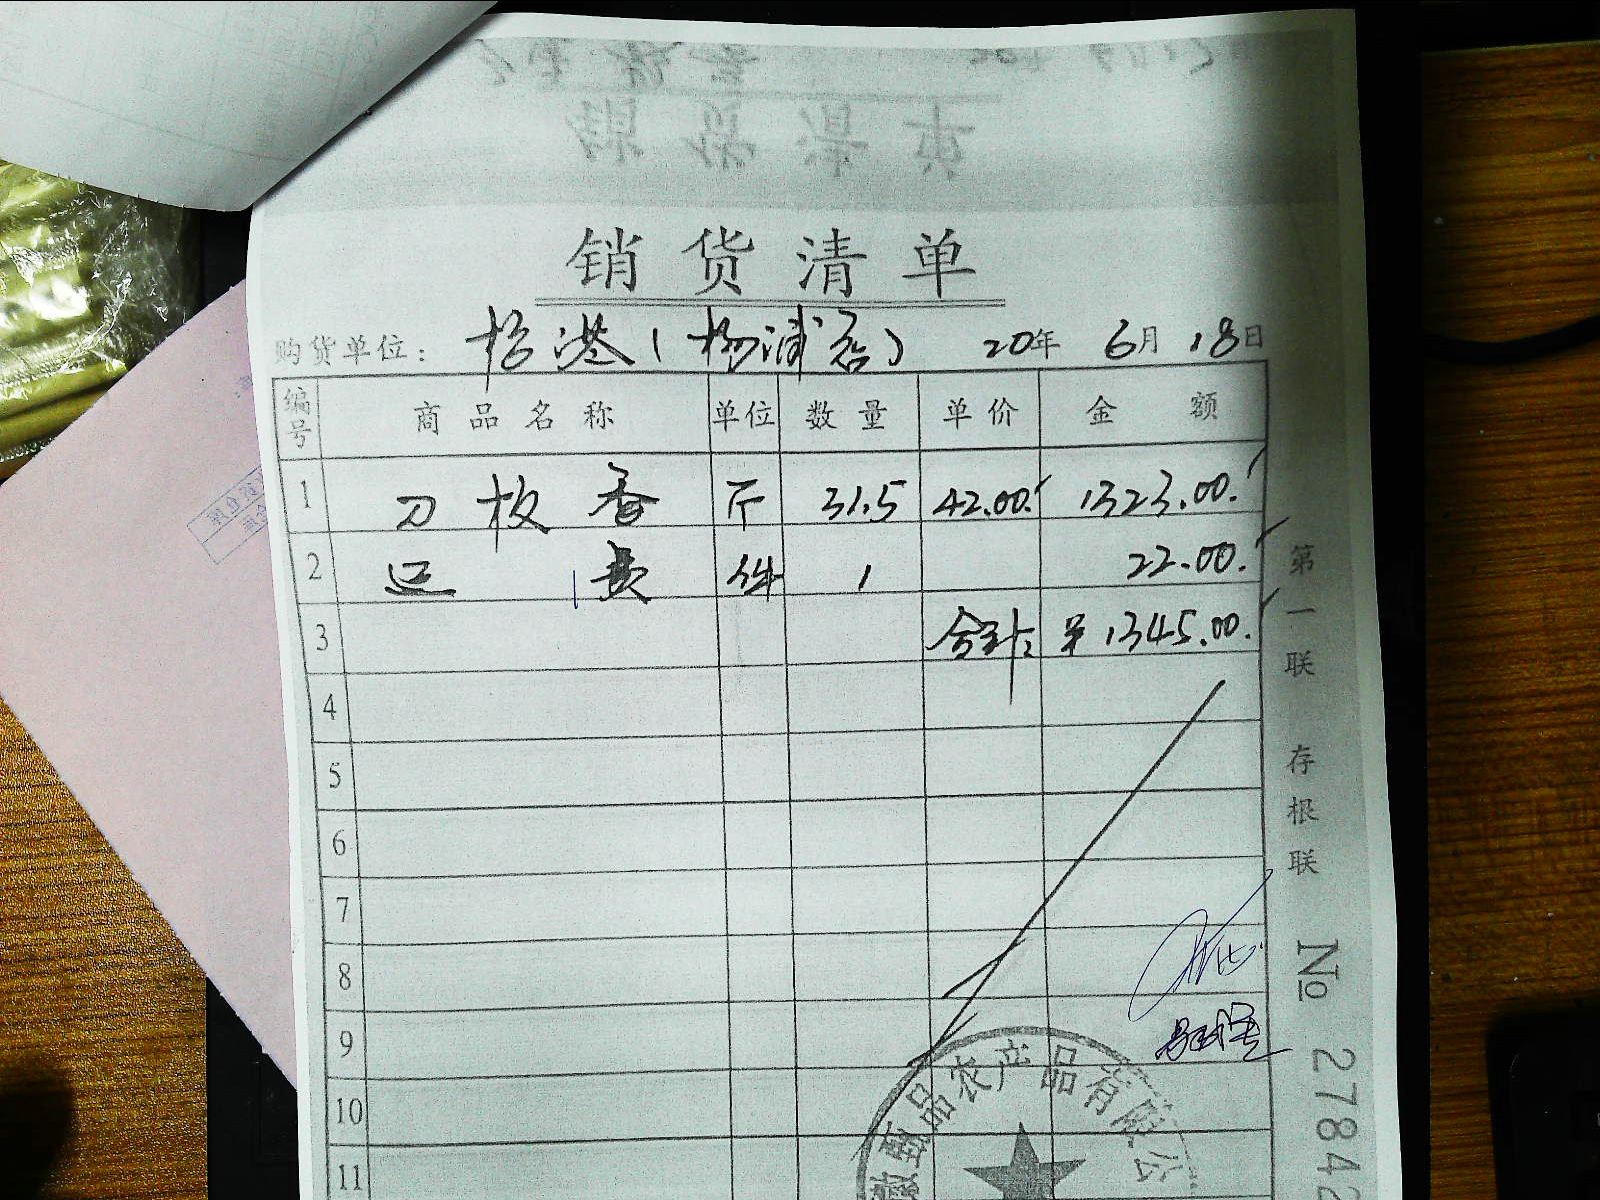 销货清单
购货单位： 杨港（杨浦店） 20年 6月 18日
编号 商品名称 单位 数量 单价 金额
1 刀板香 斤 31.5 42.00 1323.00
2 运费 件 1 22.00
3 合计: ¥1345.00
4
5
6
7
8
9
10
11
第一联 存根联 No 2784
品农产品有限公